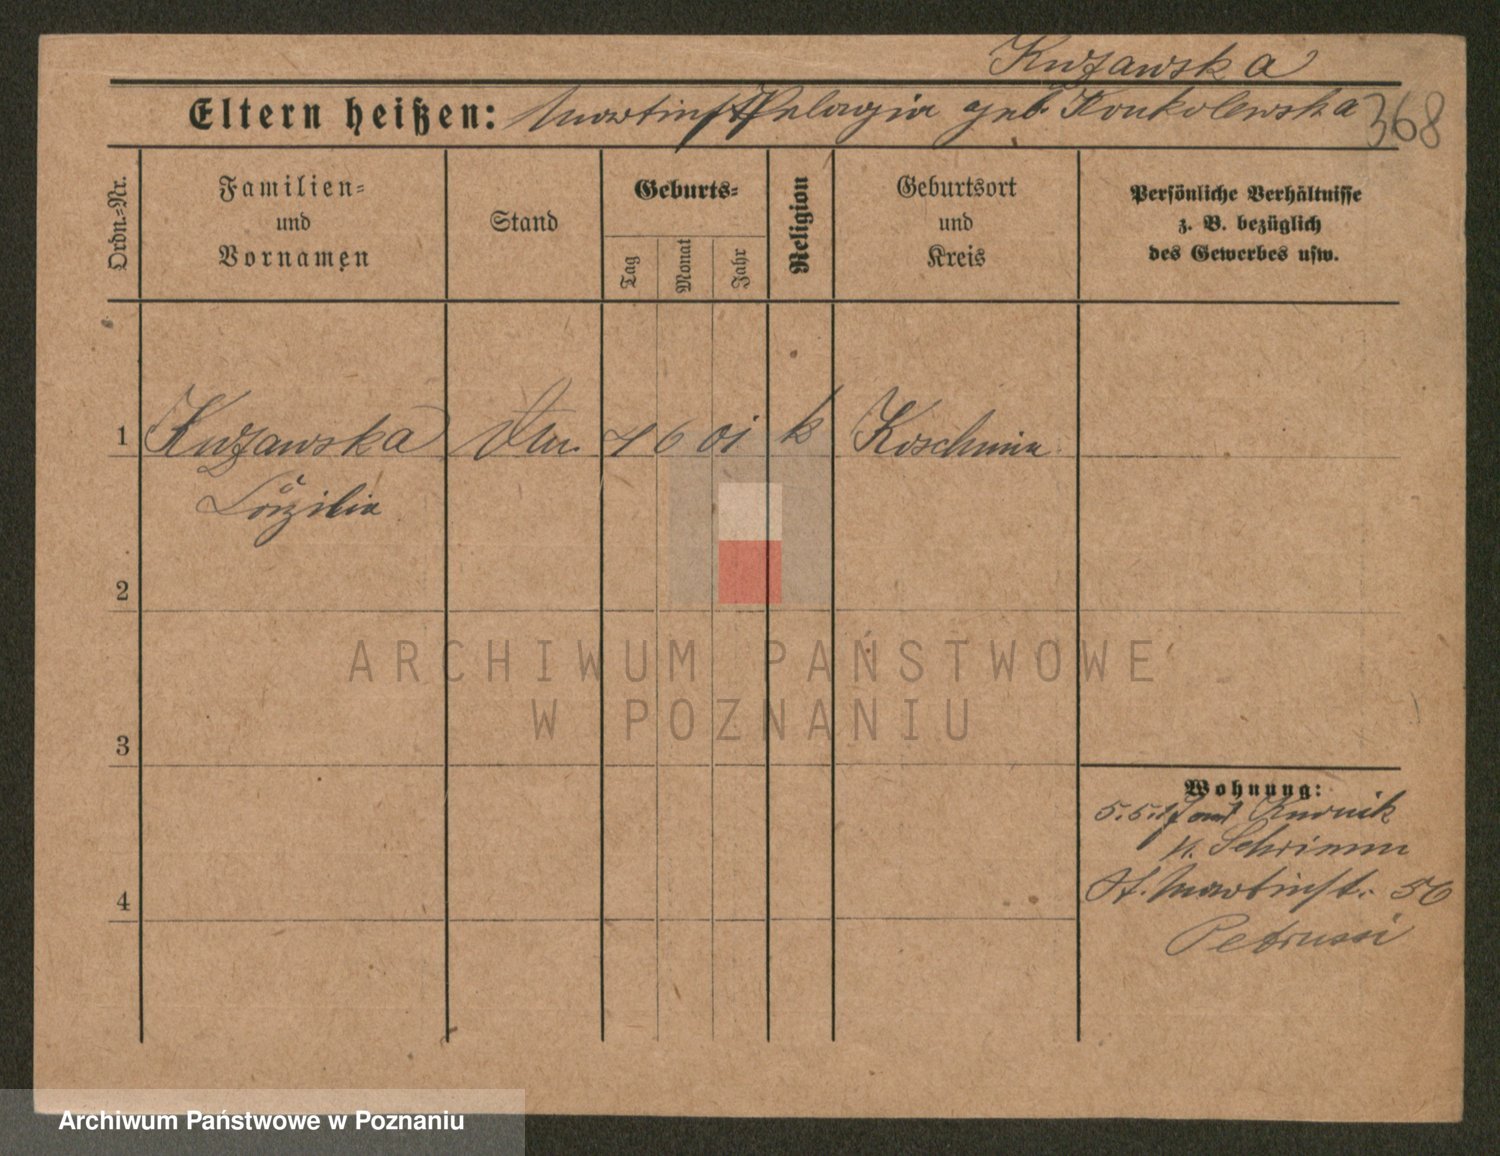 Kuzawska
Eltern heißen: Martin Pelagia geb. Konkolewska 368
Ordn.-Nr.
Familien-
und
Vornamen
Stand
Geburts-
Tag
Monat
Jahr
Religion
Geburtsort
und
Kreis
Persönliche Verhältnisse
z. B. bezüglich
des Gewerbes usw.
1 Kuzawska 4 6 01 k Koschmin
Cäzilia
2
3
4
ARCHIWUM PAŃSTWOWE
W POZNANIU
Wohnung:
5.5.17 Kurnik
K. Schrimm
St. Martinstr. 56
Archiwum Państwowe w Poznaniu